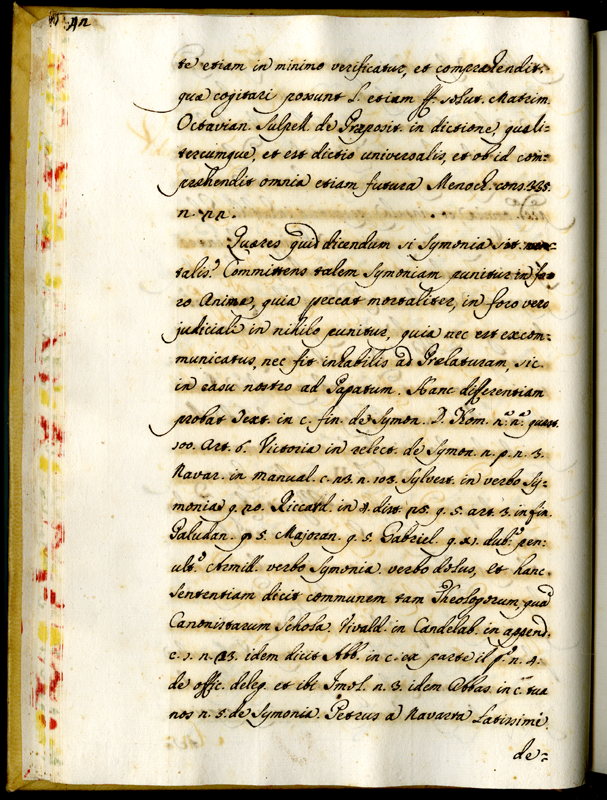 te etiam in minimo verificatur, et comprehendit.
quæ cogitari possunt l. etiam ff. solut. Matrim.
Octavian. Sulpell. de Præposit. in dictione, quali-
tercumque, et est dictio universalis, et ob id com-
prehendit omnia etiam futura Menoch. cons. 385.
n. 22.
Quæres quid dicendum si Symonia sit men-
talis? Committens talem Symoniam punitur in fo-
ro Animæ, quia peccat mortaliter, in foro vero
judiciali in nihilo punitur, quia nec est excom-
municatus, nec fit inhabilis ad Prelaturam, sic.
in casu nostro ad Papatum. Hanc differentiam
probat Text. in c. fin. de Symon. D. Thom. 2.ª 2.ª quæst.
100. Art. 6. Victoria in relect. de Symon. n. p. n. 3.
Navar. in manual. c. 23. n. 103. Sylvest. in verbo Sy-
monia q. 20. Riccard. in 4. dist. 25. q. 5. art. 3. in fin.
Paludan. q. 5. Majoran. q. 5. Gabriel. q. 21. dub.º pen-
ult.º Armill. verbo Symonia. verbo dolus, et hanc.
Sententiam dicit communem tam Theologorum, quã
Canonistarum Schola. Vivald. in Candelab. in append.
c. 1. n. 23. idem dicit Abb. in c. ex parte il p.º n. 4.
de offic. deleg. et ibi Imol. n. 3. idem Abbas. in c. tua
nos n. 5. de Symonia. Petrus a Navarra Latissimè.
de-